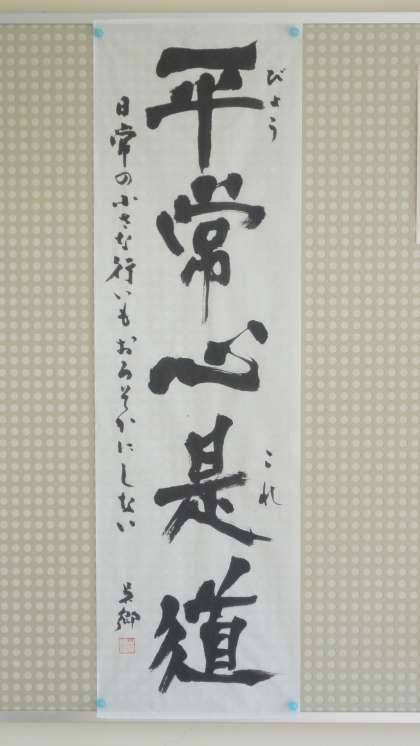 平常心是道
びょう
これ
日常の小さな行いもおろそかにしない